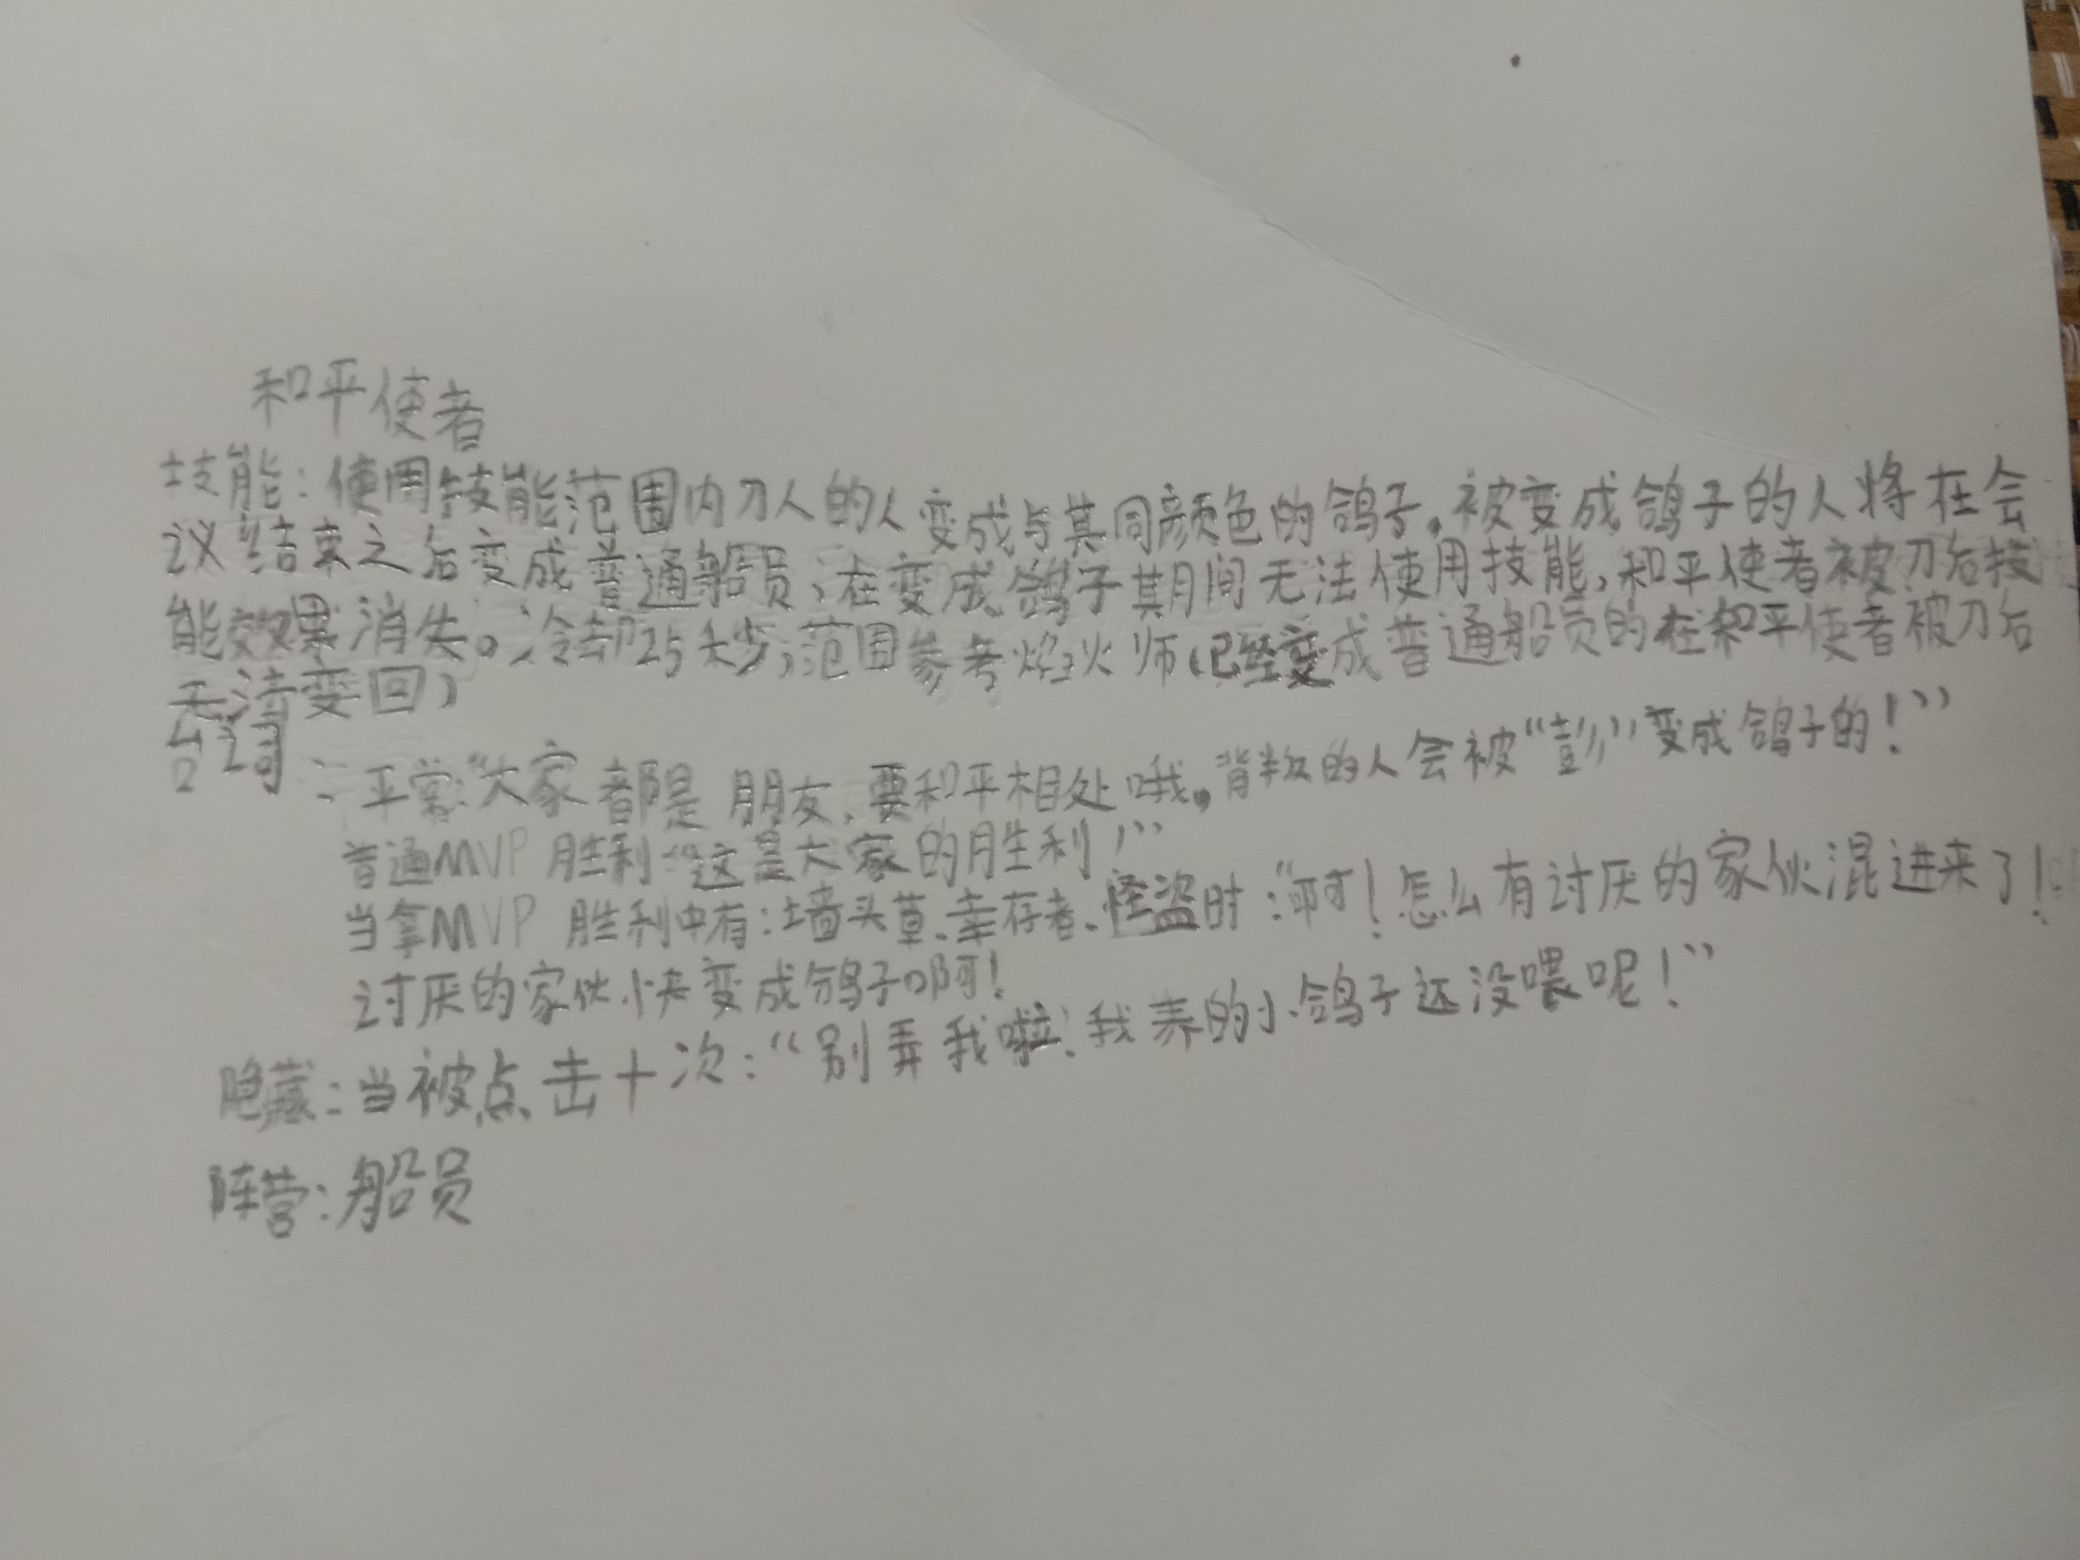 和平使者
技能：使用技能范围内刀人的人变成与其同颜色的鸽子。被变成鸽子的人将在会
议结束之后变成普通船员，在变成鸽子期间无法使用技能，和平使者被刀后技
能效果消失。冷却25秒，范围参考焰火师（已经变成普通船员的在和平使者被刀后
无法变回）
台词：平常：“大家都是朋友，要和平相处哦。背叛的人会被“彭”变成鸽子的！”
普通MVP胜利：“这是大家的胜利！”
当拿MVP胜利中有：墙头草、幸存者、怪盗时：“啊！怎么有讨厌的家伙混进来了！
讨厌的家伙快变成鸽子啊！
隐藏：当被点击十次：“别弄我啦！我养的小鸽子还没喂呢！”
阵营：船员